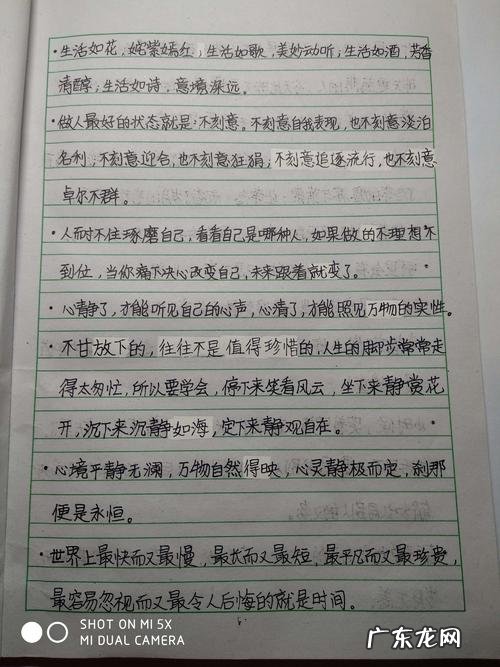 ·生活如花，姹紫嫣红；生活如歌，美妙动听；生活如酒，芳香
清醇；生活如诗，意境深远。
·做人最好的状态就是：不刻意。不刻意自我表现，也不刻意淡泊
名利；不刻意迎合，也不刻意狂狷；不刻意追逐流行，也不刻意
卓尔不群。
·人耐不住琢磨自己，看看自己是哪种人，如果做的不理想不
到位，当你痛下决心改变自己，未来跟着就变了。
·心静了，才能听见自己的心声，心清了，才能照见万物的实性。
·不甘放下的，往往不是值得珍惜的，人生的脚步常常走
得太匆忙，所以要学会，停下来笑看风云，坐下来静赏花
开，沉下来沉静如海，定下来静观自在。
·心境平静无澜，万物自然得映，心灵静极而定，刹那
便是永恒。
·世界上最快而又最慢，最长而又最短，最平凡而又最珍贵，
最容易忽视而又最令人后悔的就是时间。
SHOT ON MI 5X
MI DUAL CAMERA
广东龙网